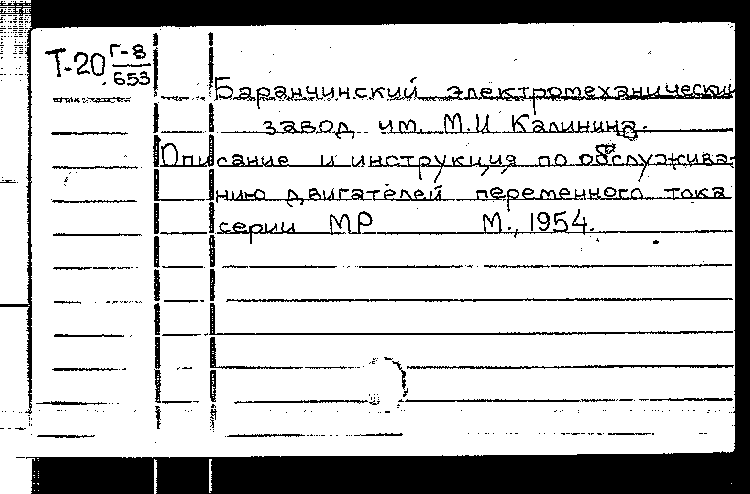 Т-20 Г-8
653
Баранчинский электромеханический
завод им. М.И Калинина.
Описание и инструкция по обслужива-
нию двигателей переменного тока
серии МР М., 1954.